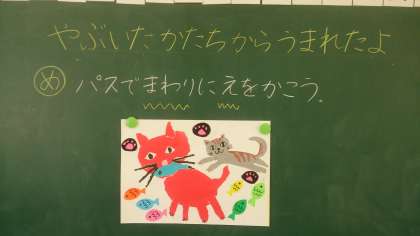 やぶいたかたちからうまれたよ
め パスでまわりにえをかこう。